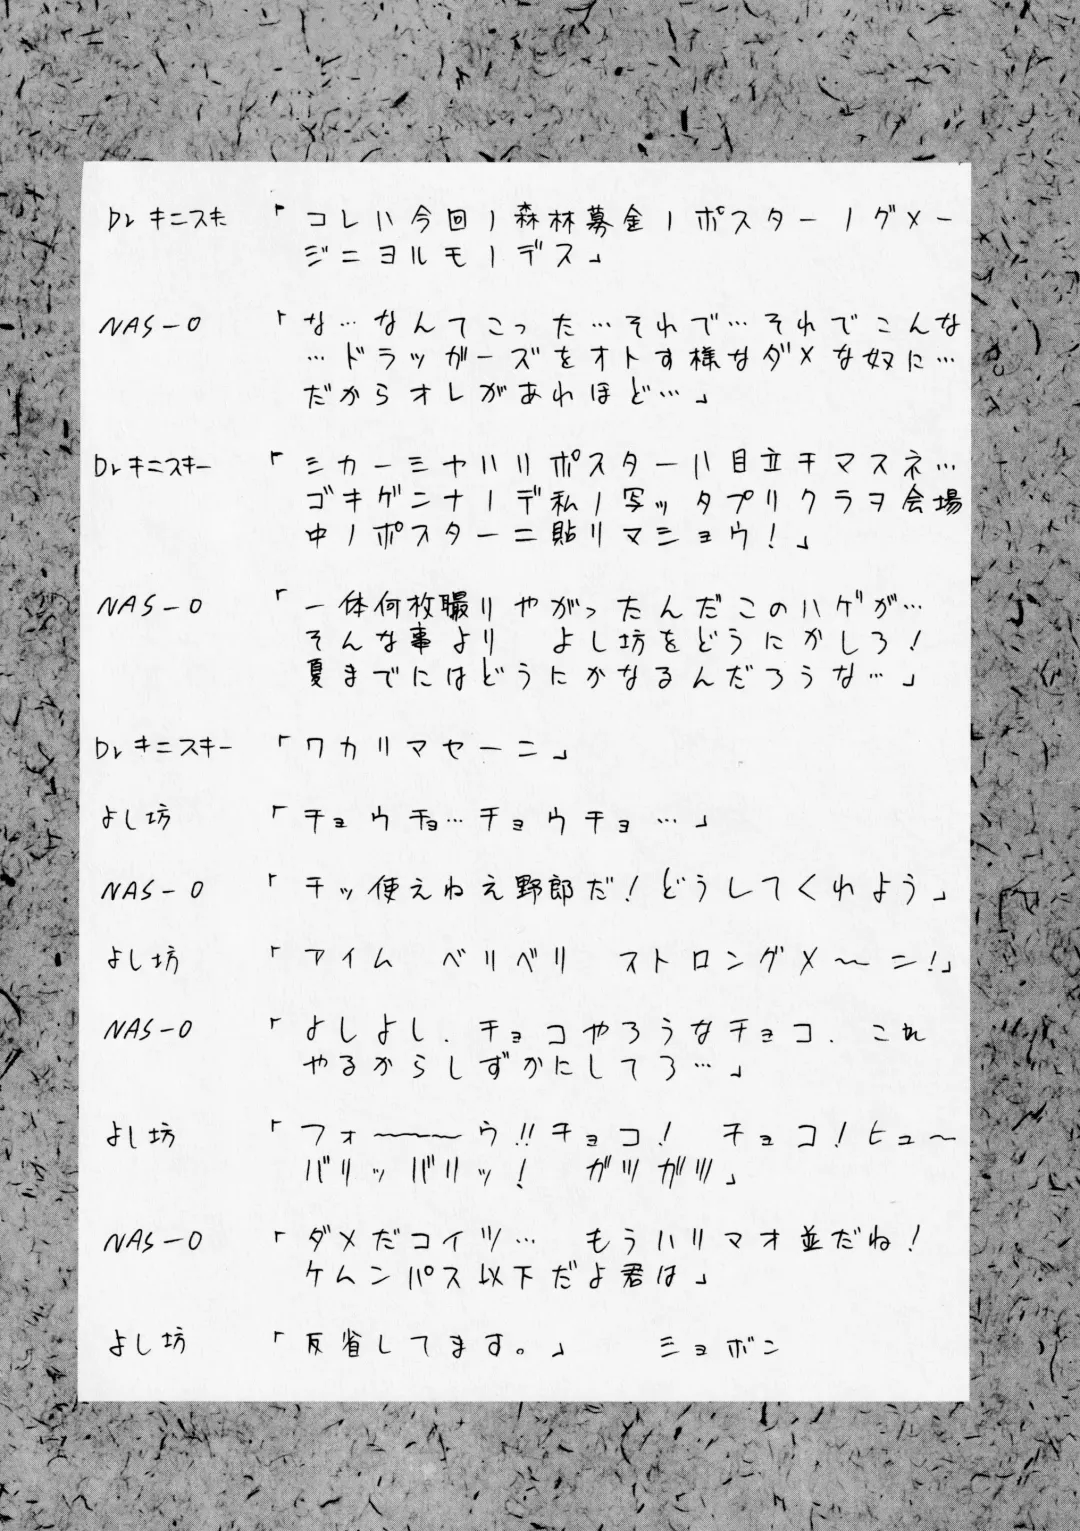 Dr キニスキ 「コレハ今回ノ森林募金ノポスターノグメー
ジニヨルモノデス」
NAS-O 「な…なんてこった…それで…それでこんな
…ドラッガーズをオトす様なダメな奴に…
だからオレがあれほど…」
Dr キニスキー 「シカーミヤハリポスターハ目立チマスネ…
ゴキゲンナノデ私ノ写ッタプリクラヲ会場
中ノポスターニ貼リマショウ!」
NAS-O 「一体何枚撮りやがったんだこのハゲが…
そんな事より よし坊をどうにかしろ!
夏までにはどうにかなるんだろうな…」
Dr キニスキー 「ワカリマセーニ」
よし坊 「チョウチョ…チョウチョ…」
NAS-O 「チッ使えねえ野郎だ!どうしてくれよう」
よし坊 「アイム ベリベリ ストロングメ〜ニ!」
NAS-O 「よしよし.チョコやろうなチョコ.これ
やるからしずかにしてろ…」
よし坊 「フォ〜〜〜〜ウ!!チョコ! チョコ!ヒュ〜
バリッバリッ! ガツガツ」
NAS-O 「ダメだコイツ… もうハリマオ並だね!
ケムンパス以下だよ君は」
よし坊 「反省してます。」 ショボン